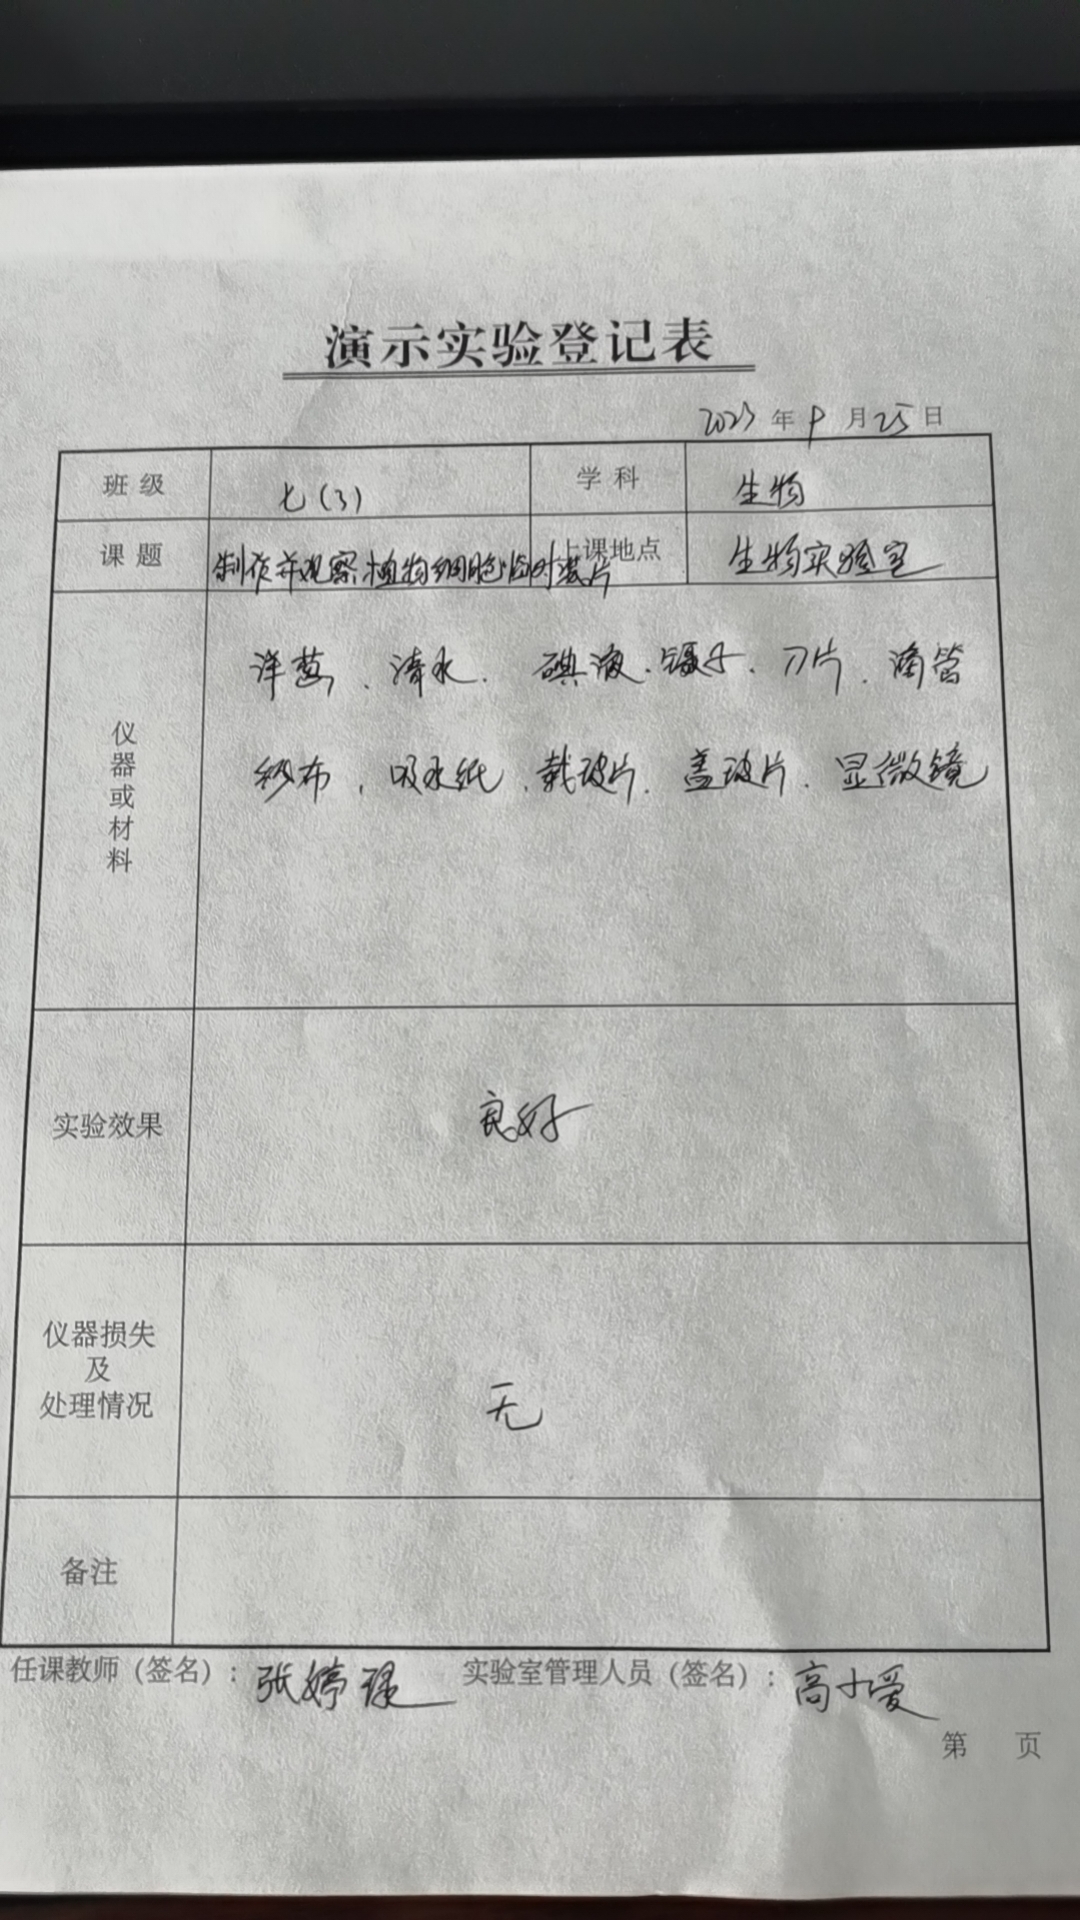 演示实验登记表
2023年9月25日
班级 七(3) 学科 生物
课题 制作并观察植物细胞临时装片 上课地点 生物实验室
仪器或材料
洋葱、清水、碘液、镊子、刀片、滴管
纱布、吸水纸、载玻片、盖玻片、显微镜
实验效果 良好
仪器损失
及
处理情况 无
备注
任课教师（签名）：张婷 实验室管理人员（签名）：高小爱
第 页